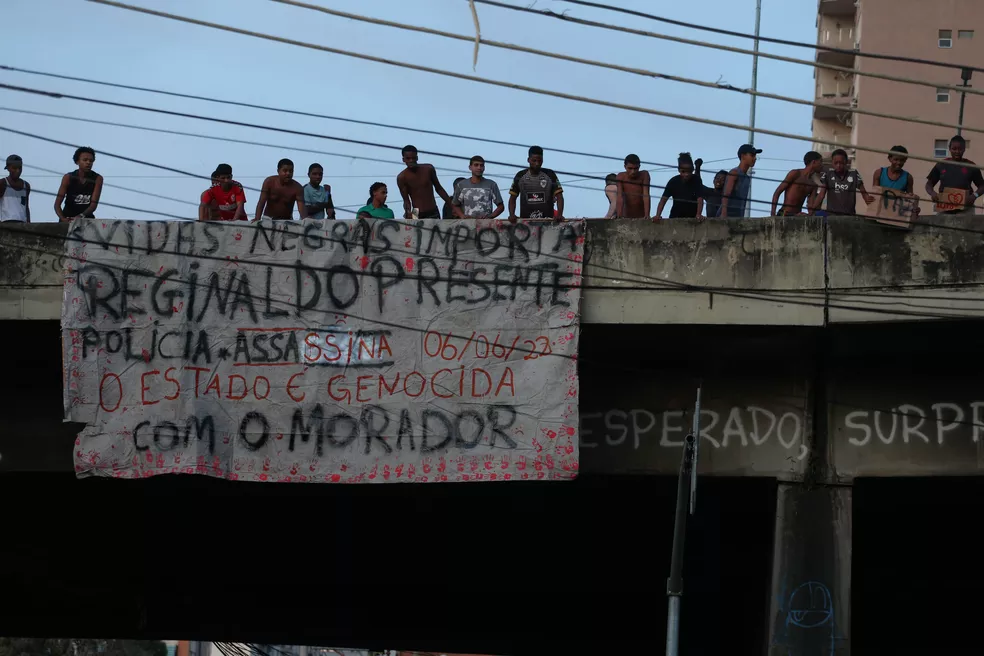 VIDAS NEGRAS IMPORTA
REGINALDO PRESENTE
POLICIA ASSASSINA 06/06/22
O ESTADO E GENOCIDA
COM O MORADOR
ESPERADO, SURPR